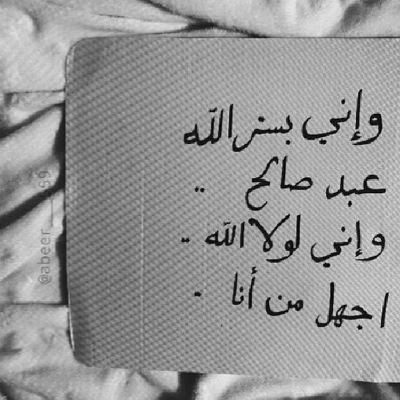 وإني بستر الله
عبد صالح ..
وإني لولا الله ..
اجهل من أنا ..